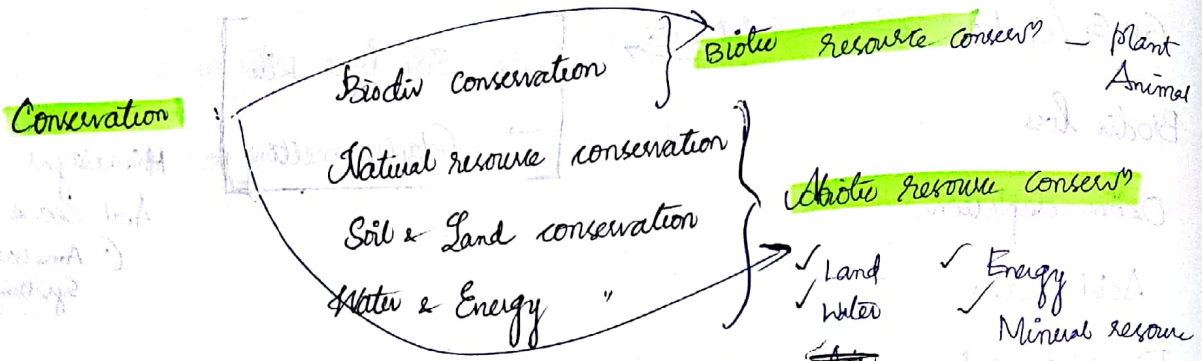 Conservation :
Biodiv conservation
Natural resource conservation
Soil & Land conservation
Water & Energy "
Biotic resource conservn — Plant
Animal
Abiotic resource conservn
✓ Land ✓ Energy
✓ Water ✓ Mineral resource